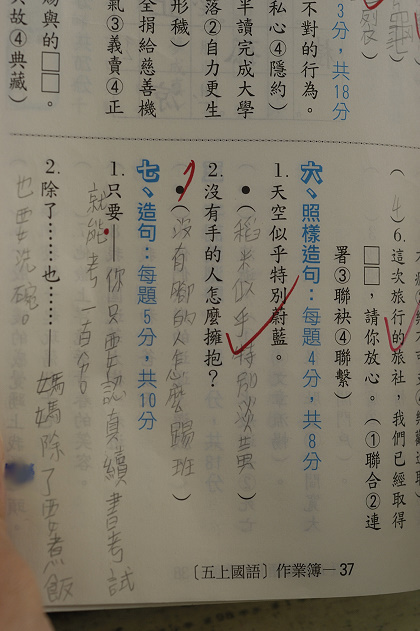 3分，共18分
不對的行為。
私心④隱約）
半讀完成大學
落②自力更生
形穢）
全捐給慈善機
氣③義賣④正
賜與的□□。
故④典藏）
6.這次旅行的旅社，我們已經取得
□□，請你放心。（①聯合②連
署③聯袂④聯繫）
六、照樣造句：每題4分，共8分
1.天空似乎特別蔚藍。
●（稻米似乎特別淡黃）
2.沒有手的人怎麼擁抱？
●（沒有腳的人怎麼踢班）
七、造句：每題5分，共10分
1.只要——你只要認真續書考試
就能考一百分。
2.除了……也……——媽媽除了要煮飯
也要洗碗。
〔五上國語〕作業簿—37